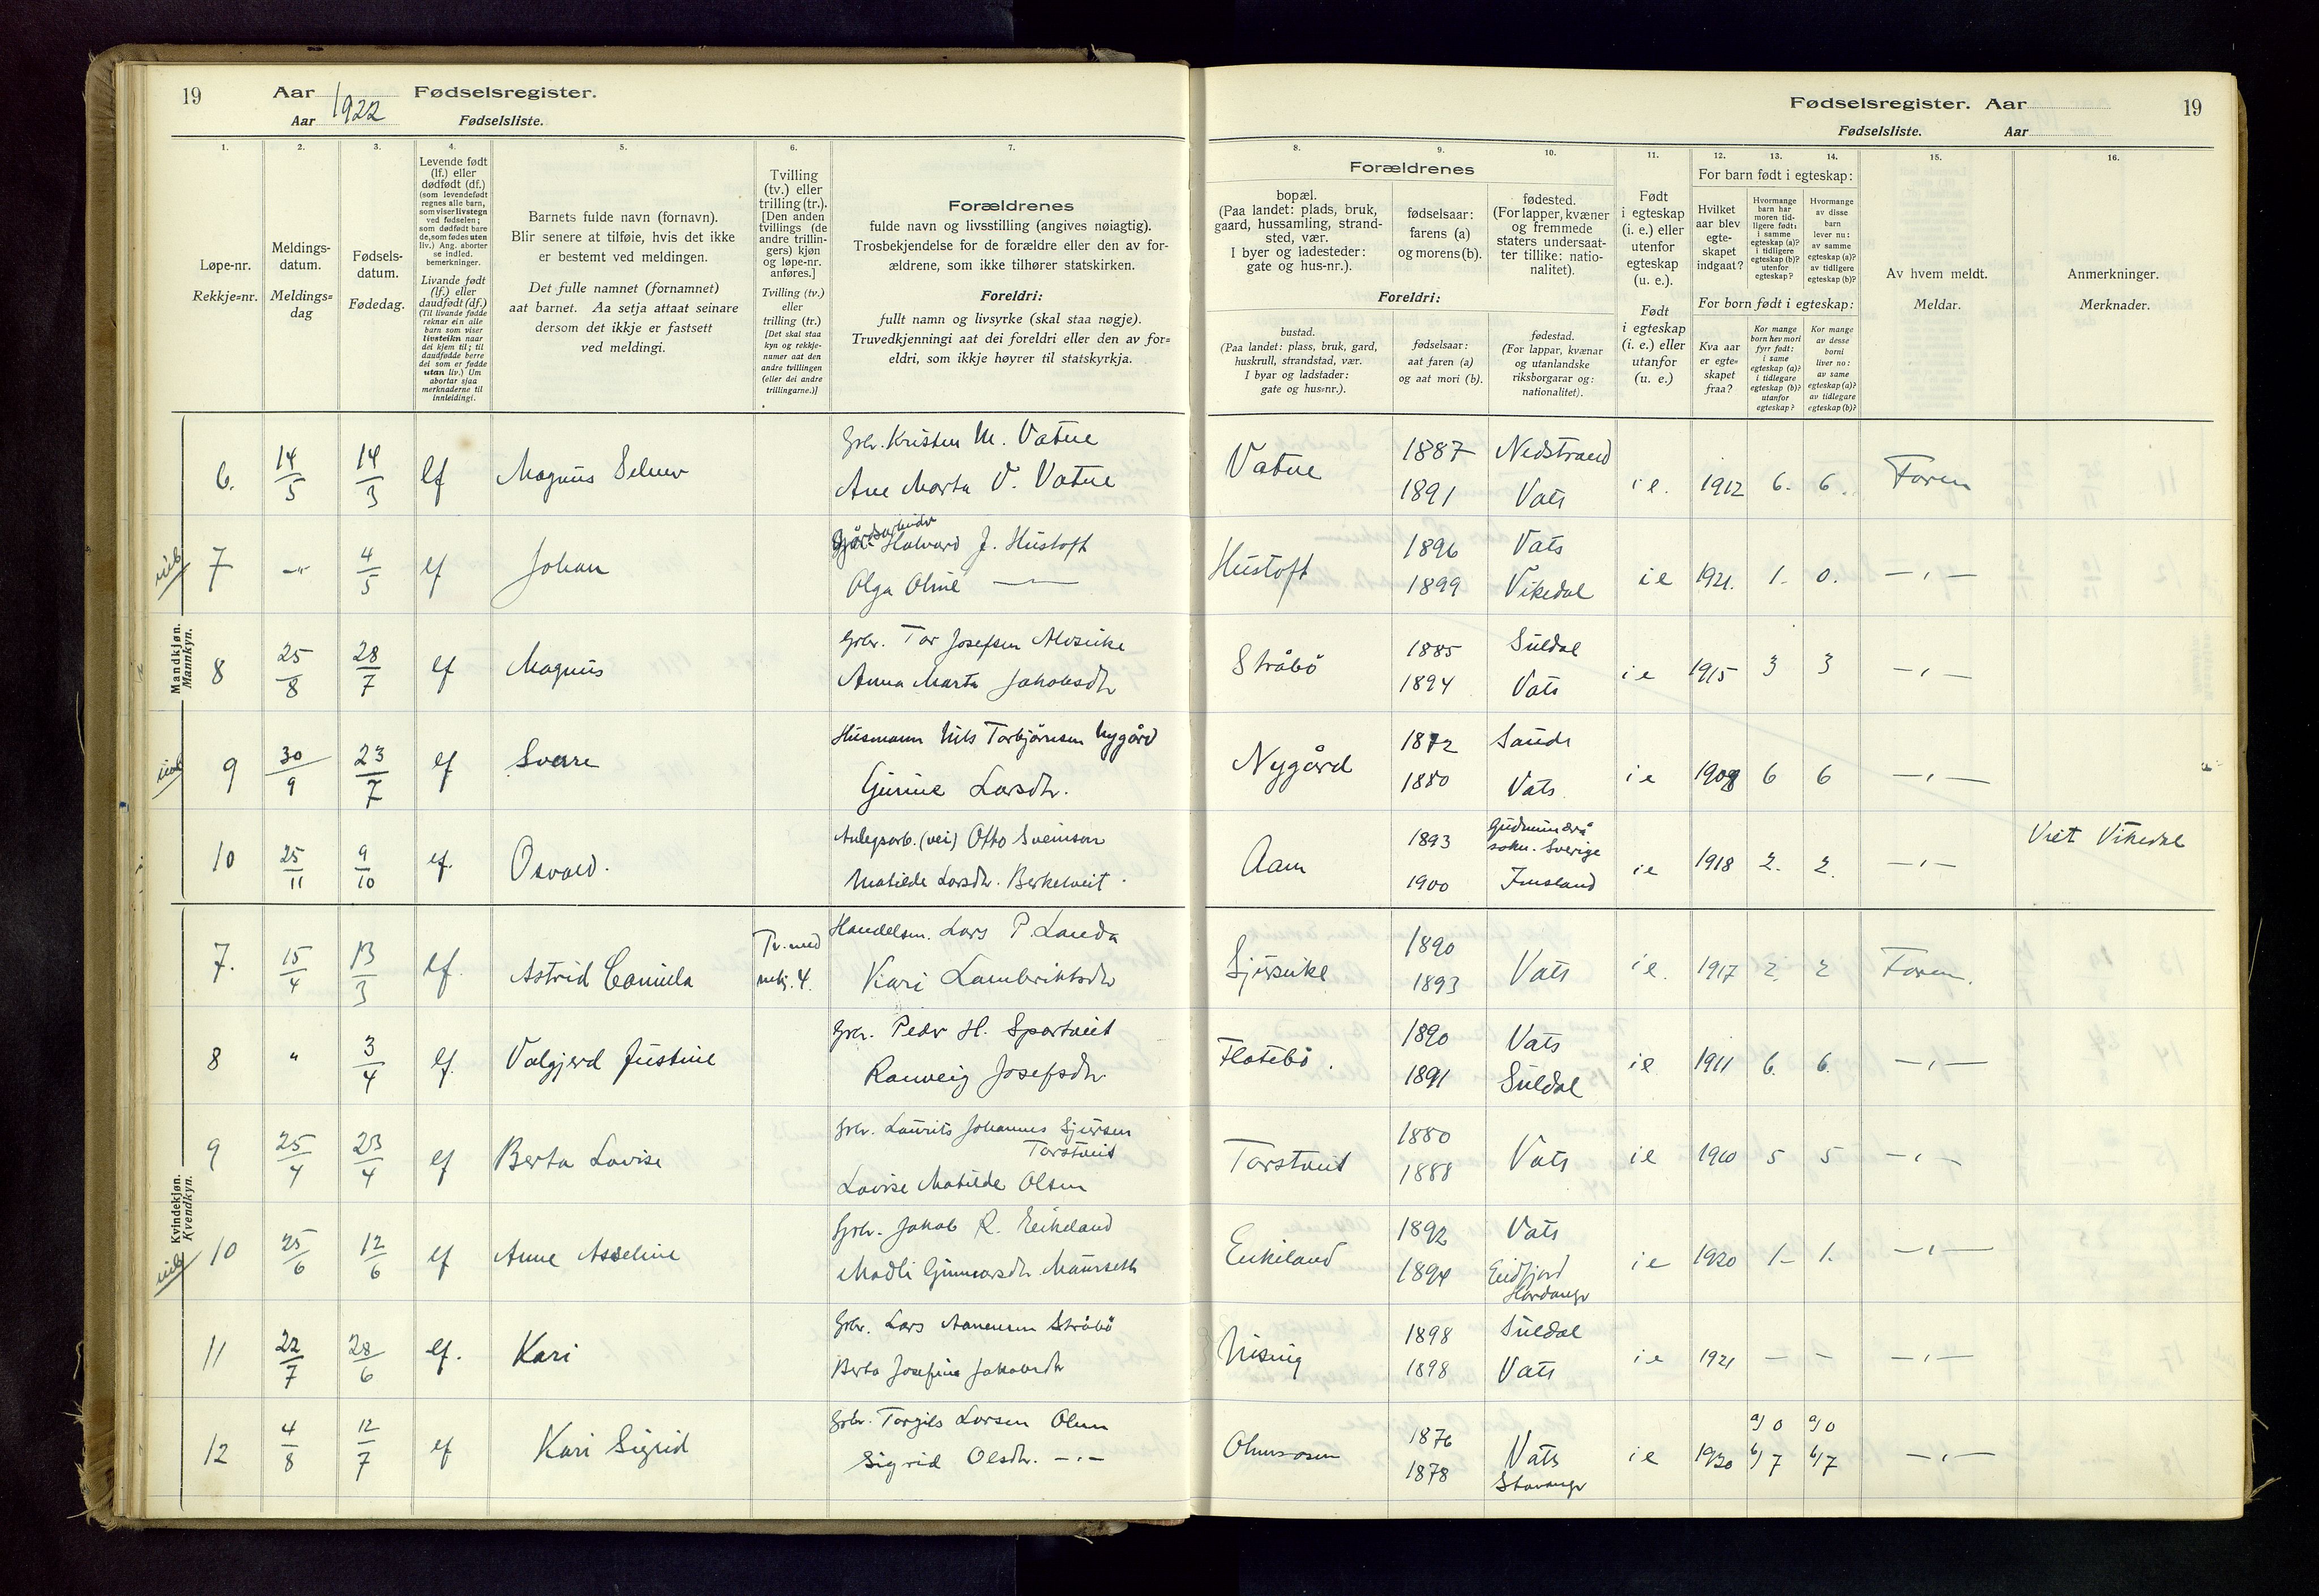 19 Aar 1922 Fødselsregister.
Aar Fødselsliste.
Fødselsregister. Aar 19
Fødselsliste. Aar
1. 2. 3. 4. 5. 6. 7. 8. 9. 10. 11. 12. 13. 14. 15. 16.
Løpe-nr.
Rekkje-nr.
Meldings-
datum.
Meldings-
dag
Fødsels-
datum.
Fødedag.
Levende født
(lf.) eller
dødfødt (df.)
(som levendefødt
regnes alle barn,
som viser livstegn
ved fødselen;
som dødfødt bare
de, som fødes uten
liv.) Ang. aborter
se indled.
bemerkninger.
Livande født
(lf.) eller
daudfødt (df.)
(Til livande fødde
reknar ein alle
barn som viser
livsteikn naar
dei kjem til; til
daudfødde berre
dei som er fødde
utan liv.) Um
abortar sjaa
merknaderne til
innleidingi.
Barnets fulde navn (fornavn).
Blir senere at tilføie, hvis det ikke
er bestemt ved meldingen.
Det fulle namnet (fornamnet)
aat barnet. Aa setja attaat seinare
dersom det ikkje er fastsett
ved meldingi.
Tvilling
(tv.) eller
trilling (tr.).
[Den anden
tvillings (de
andre trillin-
gers) kjøn
og løpe-nr.
anføres.]
Tvilling (tv.)
eller
trilling (tr.)
[Det skal staa
kyn og rekkje-
numer aat den
andre tvillingen
(eller dei andre
trillingarne.)]
Forældrenes
fulde navn og livsstilling (angives nøiagtig).
Trosbekjendelse for de forældre eller den av for-
ældrene, som ikke tilhører statskirken.
Foreldri:
fullt namn og livsyrke (skal staa nøgje).
Truvedkjenningi aat dei foreldri eller den av for-
eldri, som ikkje høyrer til statskyrkja.
Forældrenes
bopæl.
(Paa landet: plads, bruk,
gaard, hussamling, strand-
sted, vær.
I byer og ladesteder:
gate og hus-nr.).
fødselsaar:
farens (a)
og morens (b).
fødested.
(For lapper, kvæner
og fremmede
staters undersaat-
ter tillike: natio-
nalitet).
Foreldri:
bustad.
(Paa landet: plass, bruk, gard,
huskrull, strandstad, vær.
I byar og ladstader:
gate og hus-nr.).
fødselsaar:
aat faren (a)
og aat mori (b).
fødestad.
(For lappar, kvænar
og utanlandske
riksborgarar og:
nationalitet).
Født
i egteskap
(i. e.) eller
utenfor
egteskap
(u. e.).
Født
i egteskap
(i. e.) eller
utanfor
(u. e.)
For barn født i egteskap:
Hvilket
aar blev
egte-
skapet
indgaat?
Hvormange
barn har
moren tid-
ligere født:
i samme
egteskap (a)?
i tidligere
egteskap (b)?
utenfor
egteskap?
Hvormange
av disse
barn
lever nu:
av samme
egteskap (a)?
av tidligere
egteskap (b)?
For born født i egteskap:
Kva aar
er egte-
skapet
fraa?
Kor mange
born hev mori
fyrr født:
i same
egteskap (a)?
i tidlegare
egteskap (b)?
utanfor
egteskap?
Kor mange
av desse
borni
liver no:
av same
egteskap (a)?
av tidlegare
egteskap (b)?
Av hvem meldt.
Meldar.
Anmerkninger.
Merknader.
Mandkjøn.
Mannkyn.
6. 14/5 14/3 lf Magnus Selmer Grbr. Kristen M. Vatne Vatne 1887 Nedstrand i e. 1912 6. 6. Faren
Ane Marta V. Vatne 1891 Vats
7 -"- 4/5 lf Johan Gårdsarbeider Halvard J. Hustoft Hustoft 1896 Vats i e 1921. 1. 0. — " —
Olga Oline — " — 1899 Vikedal
8 25/8 28/7 lf Magnus Grbr. Tor Josefsen Alvseike Stråbö 1885 Suldal i e 1915 3 3 — " —
Anna Marta Jakobsdtr 1894 Vats
9 30/9 23/7 lf Sverre Husmann Nils Torbjörnsen Nygård Nygård 1872 Sauda i e 1908 6 6 — " —
Gurine Larsdtr. 1880 Vats
10 25/11 9/10 lf. Osvald. Anlegsarb. (vei) Otto Sveinson Aam 1893 sokn. Sverige i e 1918 2. 2. — " — Viet Vikedal
Matilde Larsdtr. Berkelveit 1900 Imsland
Kvindekjøn.
Kvendkyn.
7. 15/4 13/3 lf. Astrid Camilla Tv. med mkj. 4. Handelsm. Lars P. Landa 1890 Vats i e. 1917 2. 2 Faren.
Kari Lambriktsdtr 1893
8 " 3/4 lf. Valgjerd Justine Grbr. Peder H. Spartveit Flotebö. 1890 Vats i e 1911 6. 6. — " —
Ranveig Josefsdtr 1891 Suldal
9 25/4 23/4 lf Berta Lovise Grbr. Laurits Johannes Sjursen
Torstveit Torstveit 1880 Vats i e 1910 5 5 — " —
Lovise Matilde Olsen 1888
10 25/6 12/6 lf Anne Asseline Grbr. Jakob R. Eikeland Eikeland 1892 Vats i e 1920 1. 1. — " —
Madli Gunnarsdtr. Maurseth 1894 Eidfjord
Hardanger
11 22/7 28/6 lf. Kari Grbr. Lars Aanensen Stråbö 1898 Suldal i e 1921 — — — " —
Berta Josefine Jakobsdtr 1898 Vats
12 4/8 12/7 lf Kari Sigrid Grbr. Torgils Larsen Ølmen 1876 Vats i e 1920 a) 0 b) 7 a) 0 b) 7 — " —
Sigrid Olsdtr. — " — 1878 Stavanger